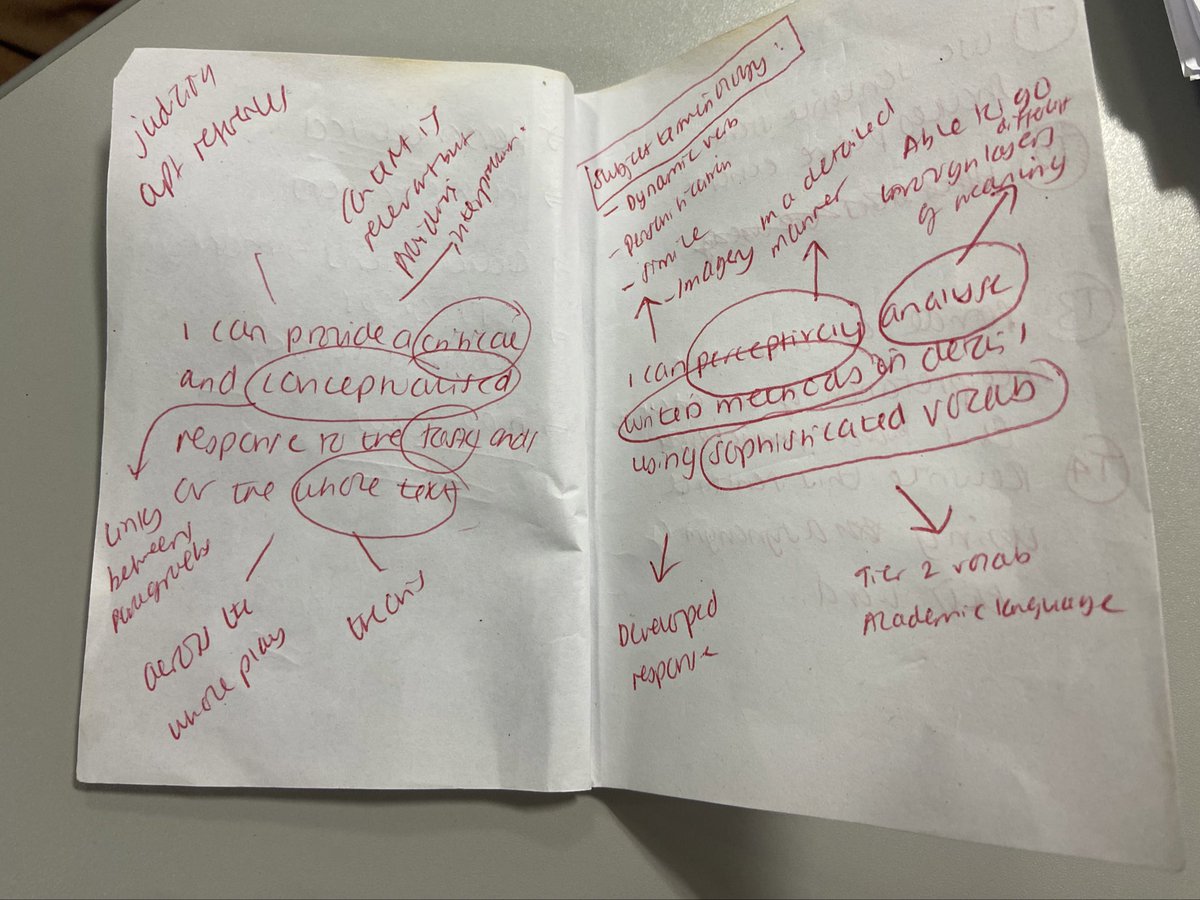 judicity
apt references
context is
relevant but
provides
interpretation.
I can provide a critical
and conceptualised
response to the task and
or the whole text
Links
between
paragraphs
across the
whole play
thesis
Subject terminology:
- Dynamic verb
- Personification
- simile
- Imagery
in a detailed
manner
Able to go
different
through layers
of meaning
I can perceptively analyse
writers methods in detail
using sophisticated vocab
Developed
response
Tier 2 vocab
Academic language